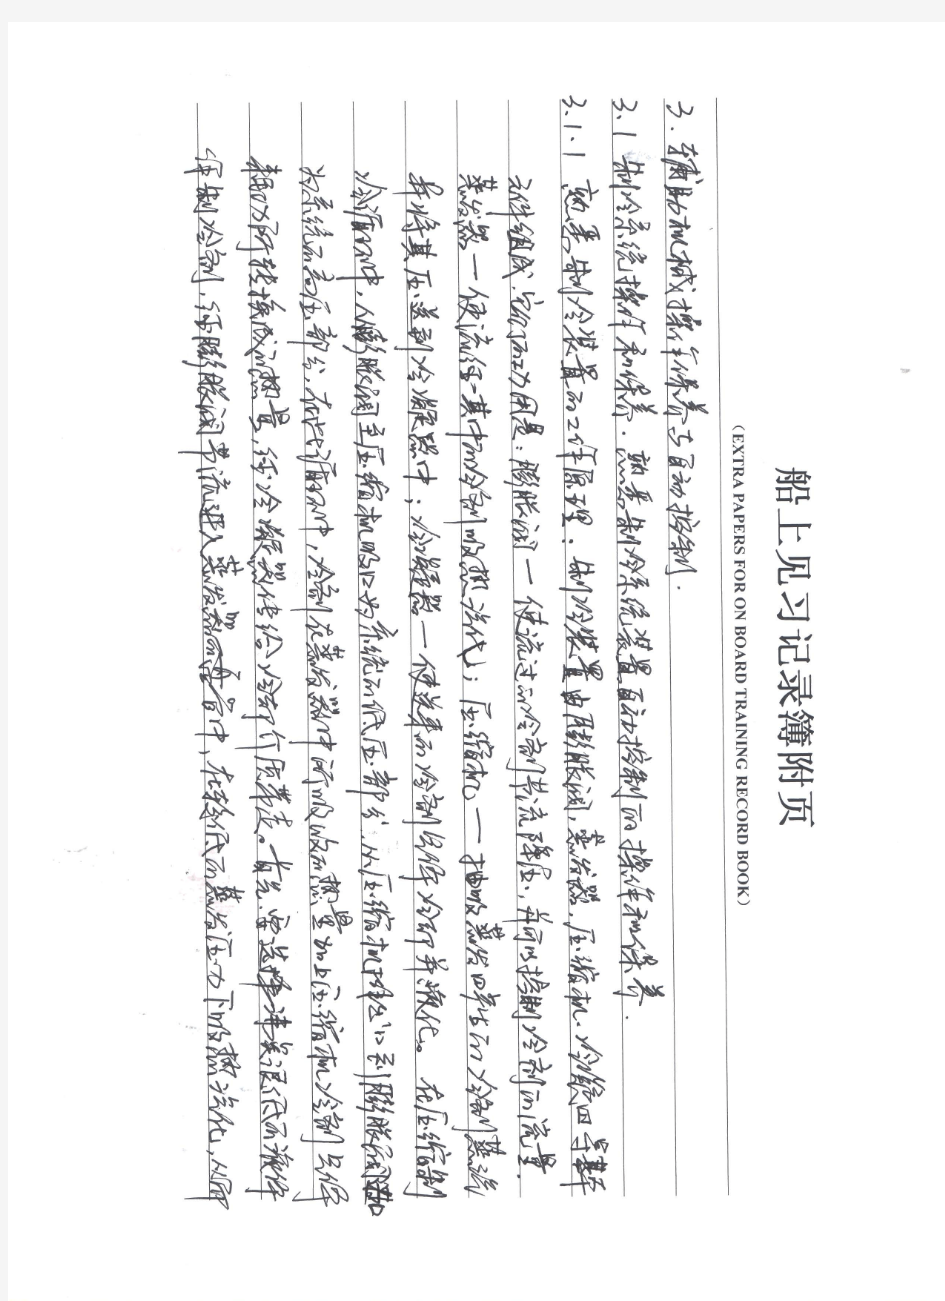 船上见习记录簿附页
(EXTRA PAPERS FOR ON BOARD TRAINING RECORD BOOK)
3. 辅助机械操作保养与自动控制.
3.1 制冷系统操作和保养. 熟悉制冷系统装置自动控制的操作和保养.
3.1.1 熟悉制冷装置的工作原理. 制冷装置由膨胀阀, 蒸发器, 压缩机, 冷凝四
元件组成, 它们的功用是: 膨胀阀一使流过的冷剂节流降压, 并可以控制冷剂的流量.
蒸发器一使流经其中的冷剂吸热汽化; 压缩机一抽吸蒸发 的冷剂蒸汽
并将其压送到冷凝器中; 冷凝器一使 的冷剂气体冷却并液化。在压缩制
冷循环中, 从膨胀阀至压缩机吸口为系统的低压部分, 从压缩机排出口到膨胀阀
为系统的高压部分, 在此循环中, 冷剂在蒸发器中所吸收的热量加上压缩机冷剂气体
所转换成的热量, 经冷凝器传给冷却介质带走。首先, 要选择沸点很低的液体
作制冷剂, 经膨胀阀节流进入蒸发器 管中, 在较低的蒸发压力下吸热汽化, 从而